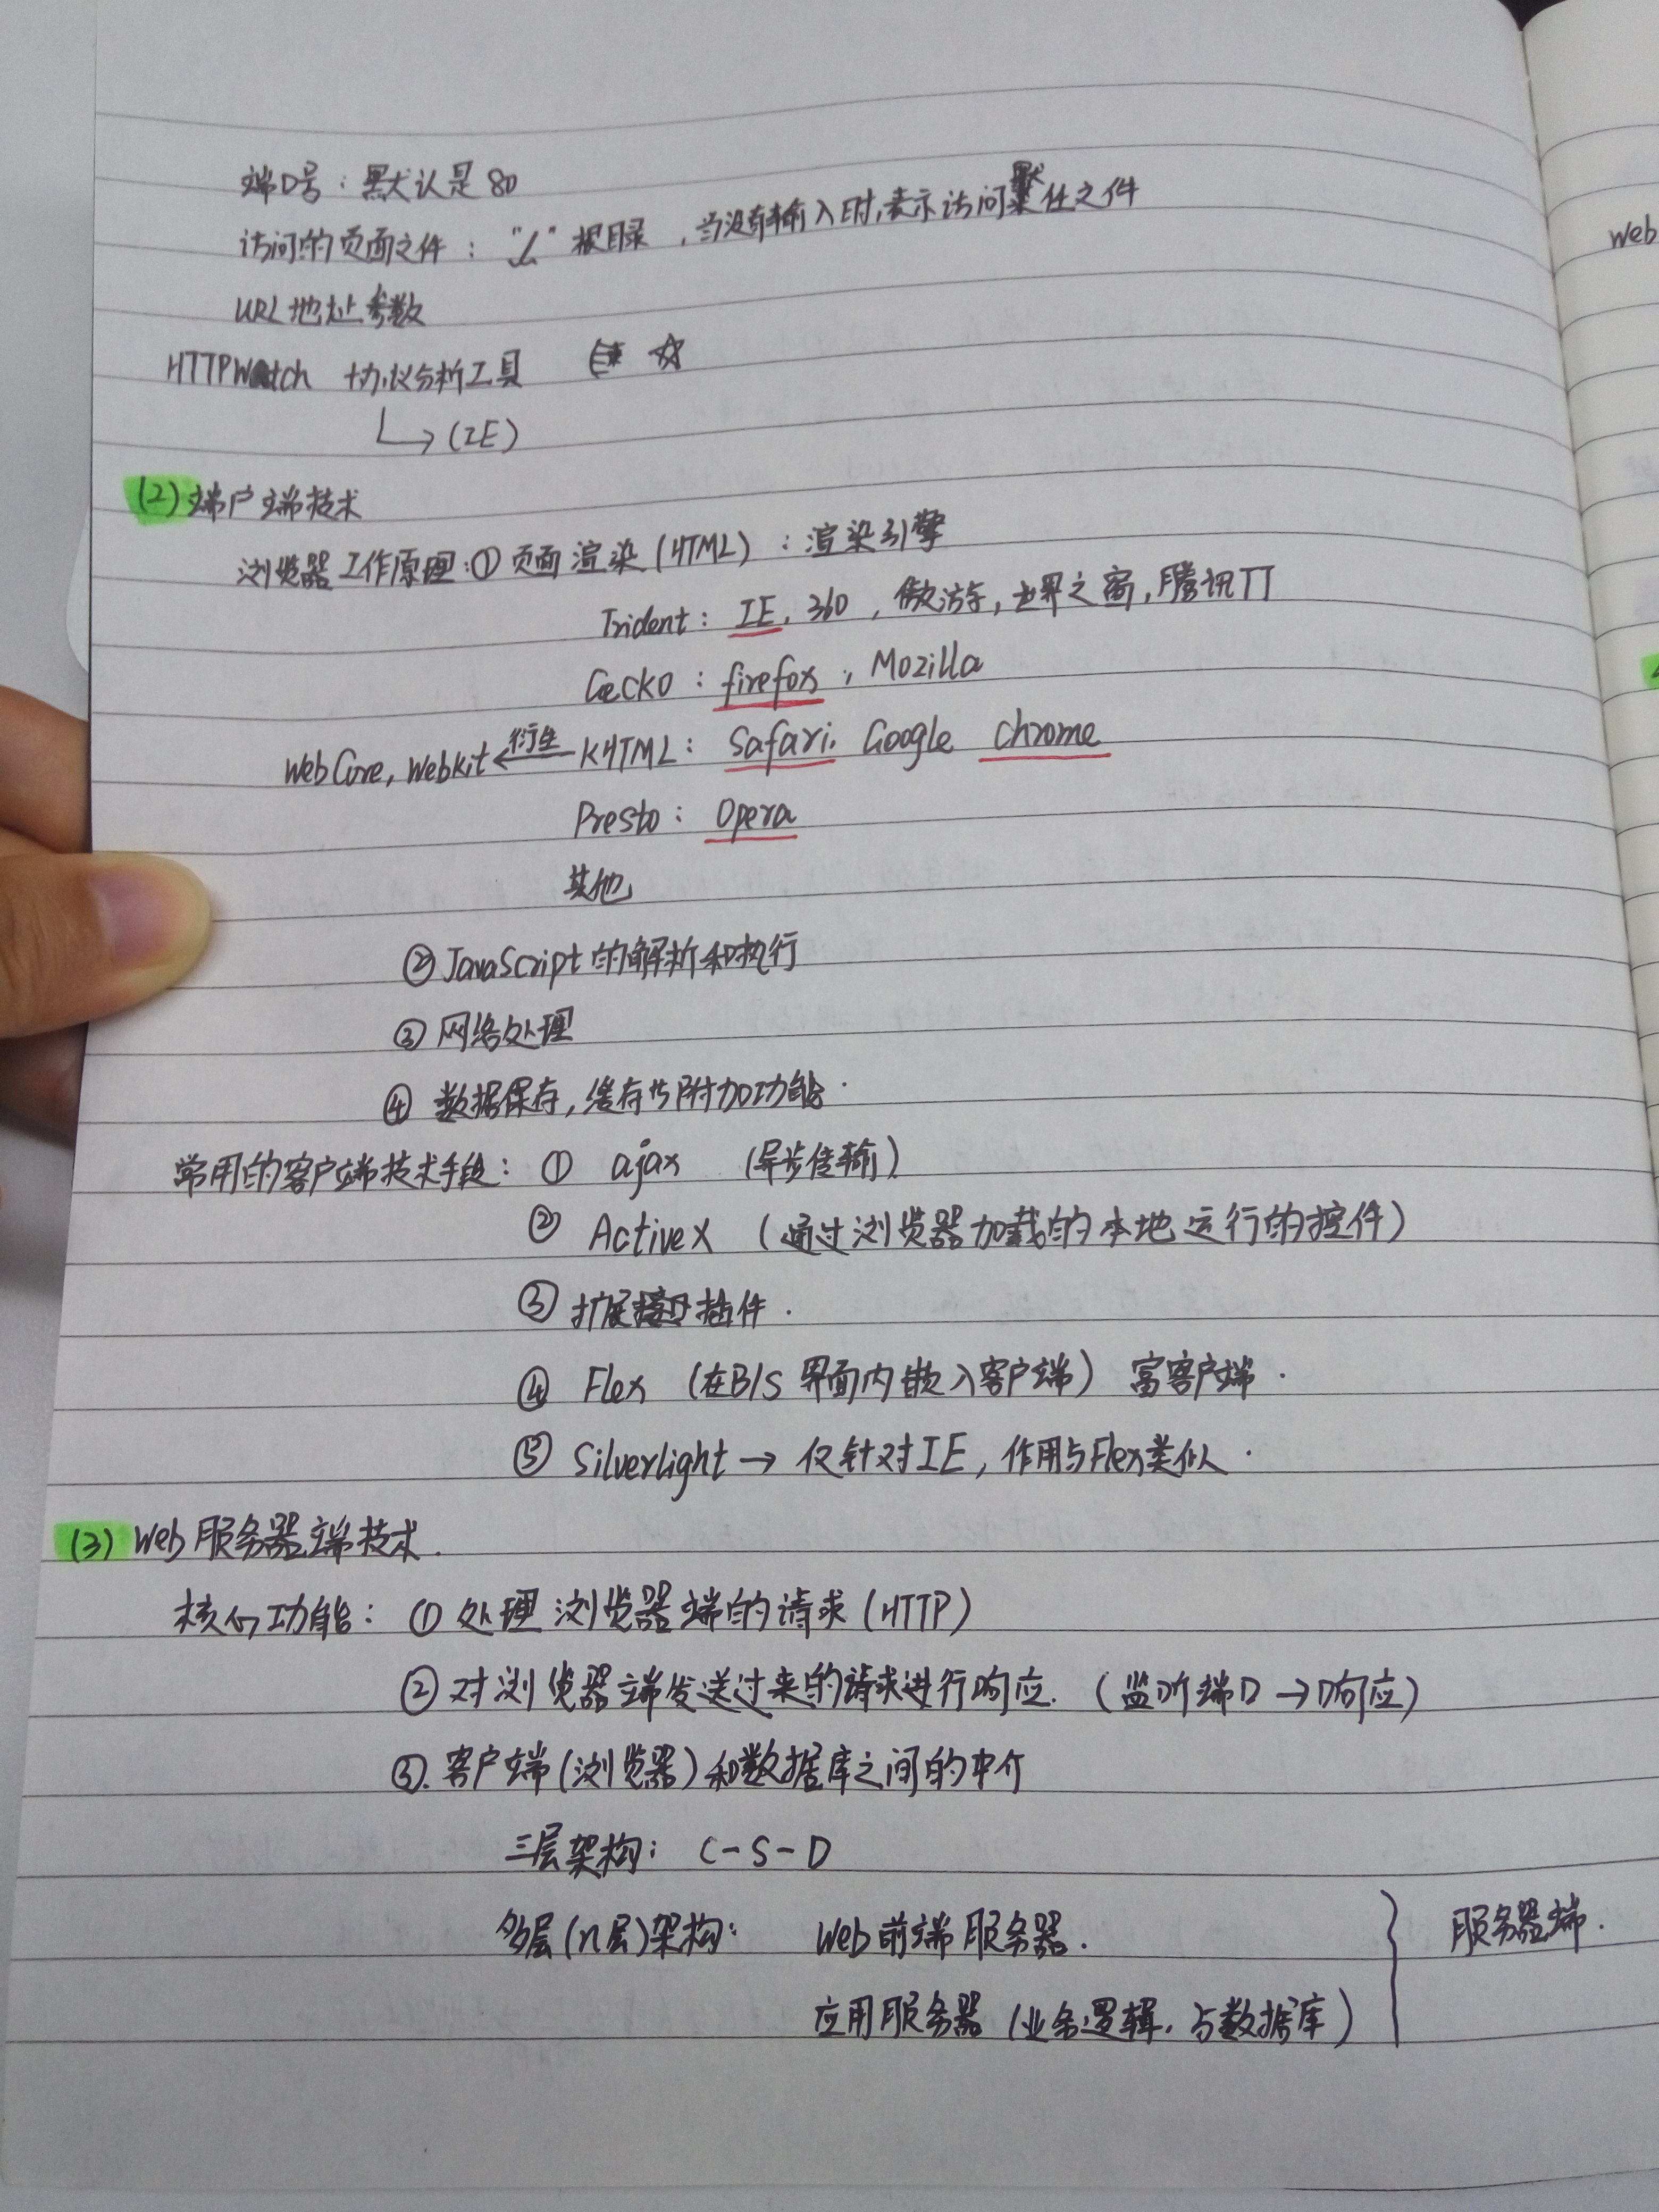 端口号：默认是80
访问的页面文件："/" 根目录，当没有输入时，表示访问默任文件
URL地址参数
HTTPWatch 协议分析工具 ☆
↳ (IE)
(2) 端户端技术
浏览器工作原理：① 页面渲染(HTML)：渲染引擎
Trident：IE, 360，傲游，世界之窗，腾讯TT
Gecko：firefox，Mozilla
WebCore, Webkit ←衍生 KHTML：Safari, Google Chrome
Presto：Opera
其他
② JavaScript的解析和执行
③ 网络处理
④ 数据保存，缓存与附加功能.
常用的客户端技术手段：① ajax (异步传输)
② ActiveX (通过浏览器加载的本地运行的控件)
③ 扩展插件.
④ Flex (在B/S界面内嵌入客户端) 富客户端.
⑤ Silverlight → 仅针对IE，作用与Flex类似.
(3) Web服务器端技术.
核心功能：① 处理浏览器端的请求(HTTP)
② 对浏览器端发送过来的请求进行响应. (监听端口→响应)
③. 客户端(浏览器)和数据库之间的中介
三层架构：C-S-D
多层(n层)架构： Web前端服务器. 服务器端.
应用服务器 (业务逻辑，与数据库)
Web